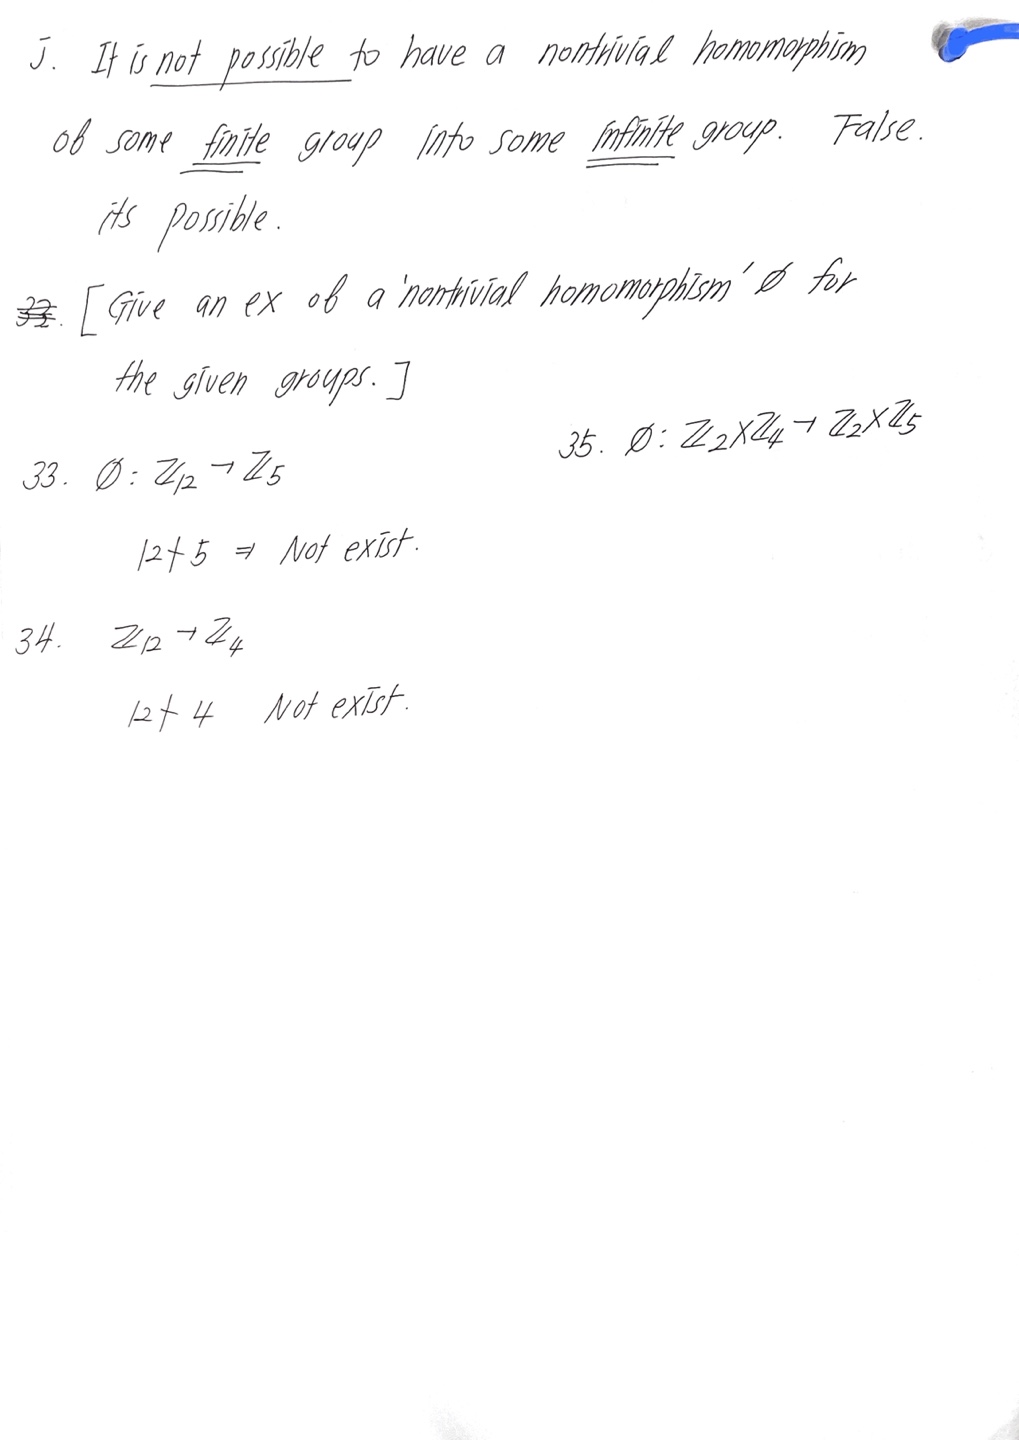 j. It is not possible to have a nontrivial homomorphism
of some finite group into some infinite group. False.
its possible.
[Give an ex of a 'nontrivial homomorphism' Ø for
the given groups.]
33. Ø: ℤ₁₂ → ℤ₅
12∤5 ⇒ Not exist.
34. ℤ₁₂ → ℤ₄
12∤4 Not exist.
35. Ø: ℤ₂×ℤ₄ → ℤ₂×ℤ₅